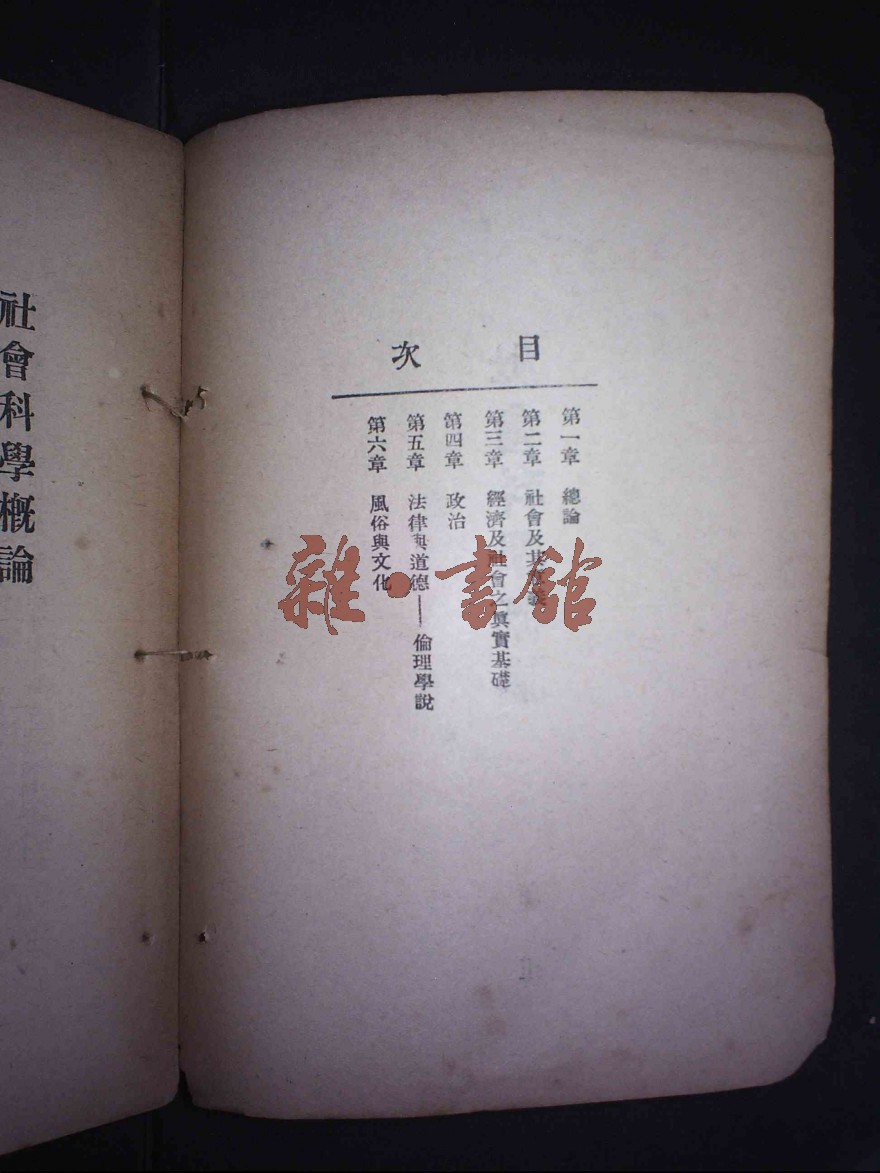 目次
第一章 總論
第二章 社會及其意義
第三章 經濟及社會之眞實基礎
第四章 政治
第五章 法律與道德——倫理學說
第六章 風俗與文化
社會科學概論
雜·書館